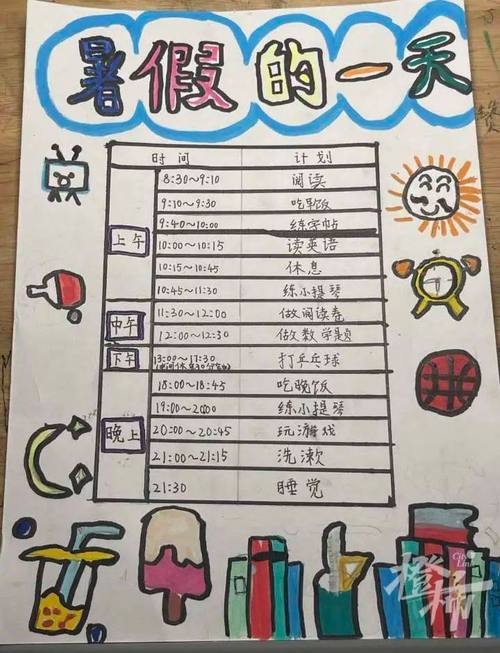 暑假的一天
时间 计划
上午
8:30~9:10 阅读
9:10~9:30 吃早饭
9:40~10:00 练字帖
10:00~10:15 读英语
10:15~10:45 休息
10:45~11:30 练小提琴
中午
11:30~12:00 做阅读卷
12:00~12:30 做数学题
下午
13:00~17:30 打乒乓球
晚上
18:00~18:45 吃晚饭
19:00~20:00 练小提琴
20:00~20:45 玩游戏
21:00~21:15 洗漱
21:30 睡觉
橙柿